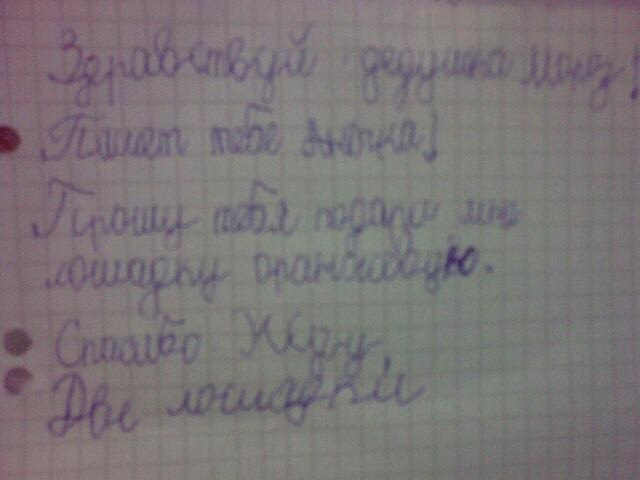 Здравствуй дедушка Мороз!
Пишет тебе Анечка!
Прошу тебя подари мне
лошадку оранжевую.
Спасибо Жду
Две лошадки